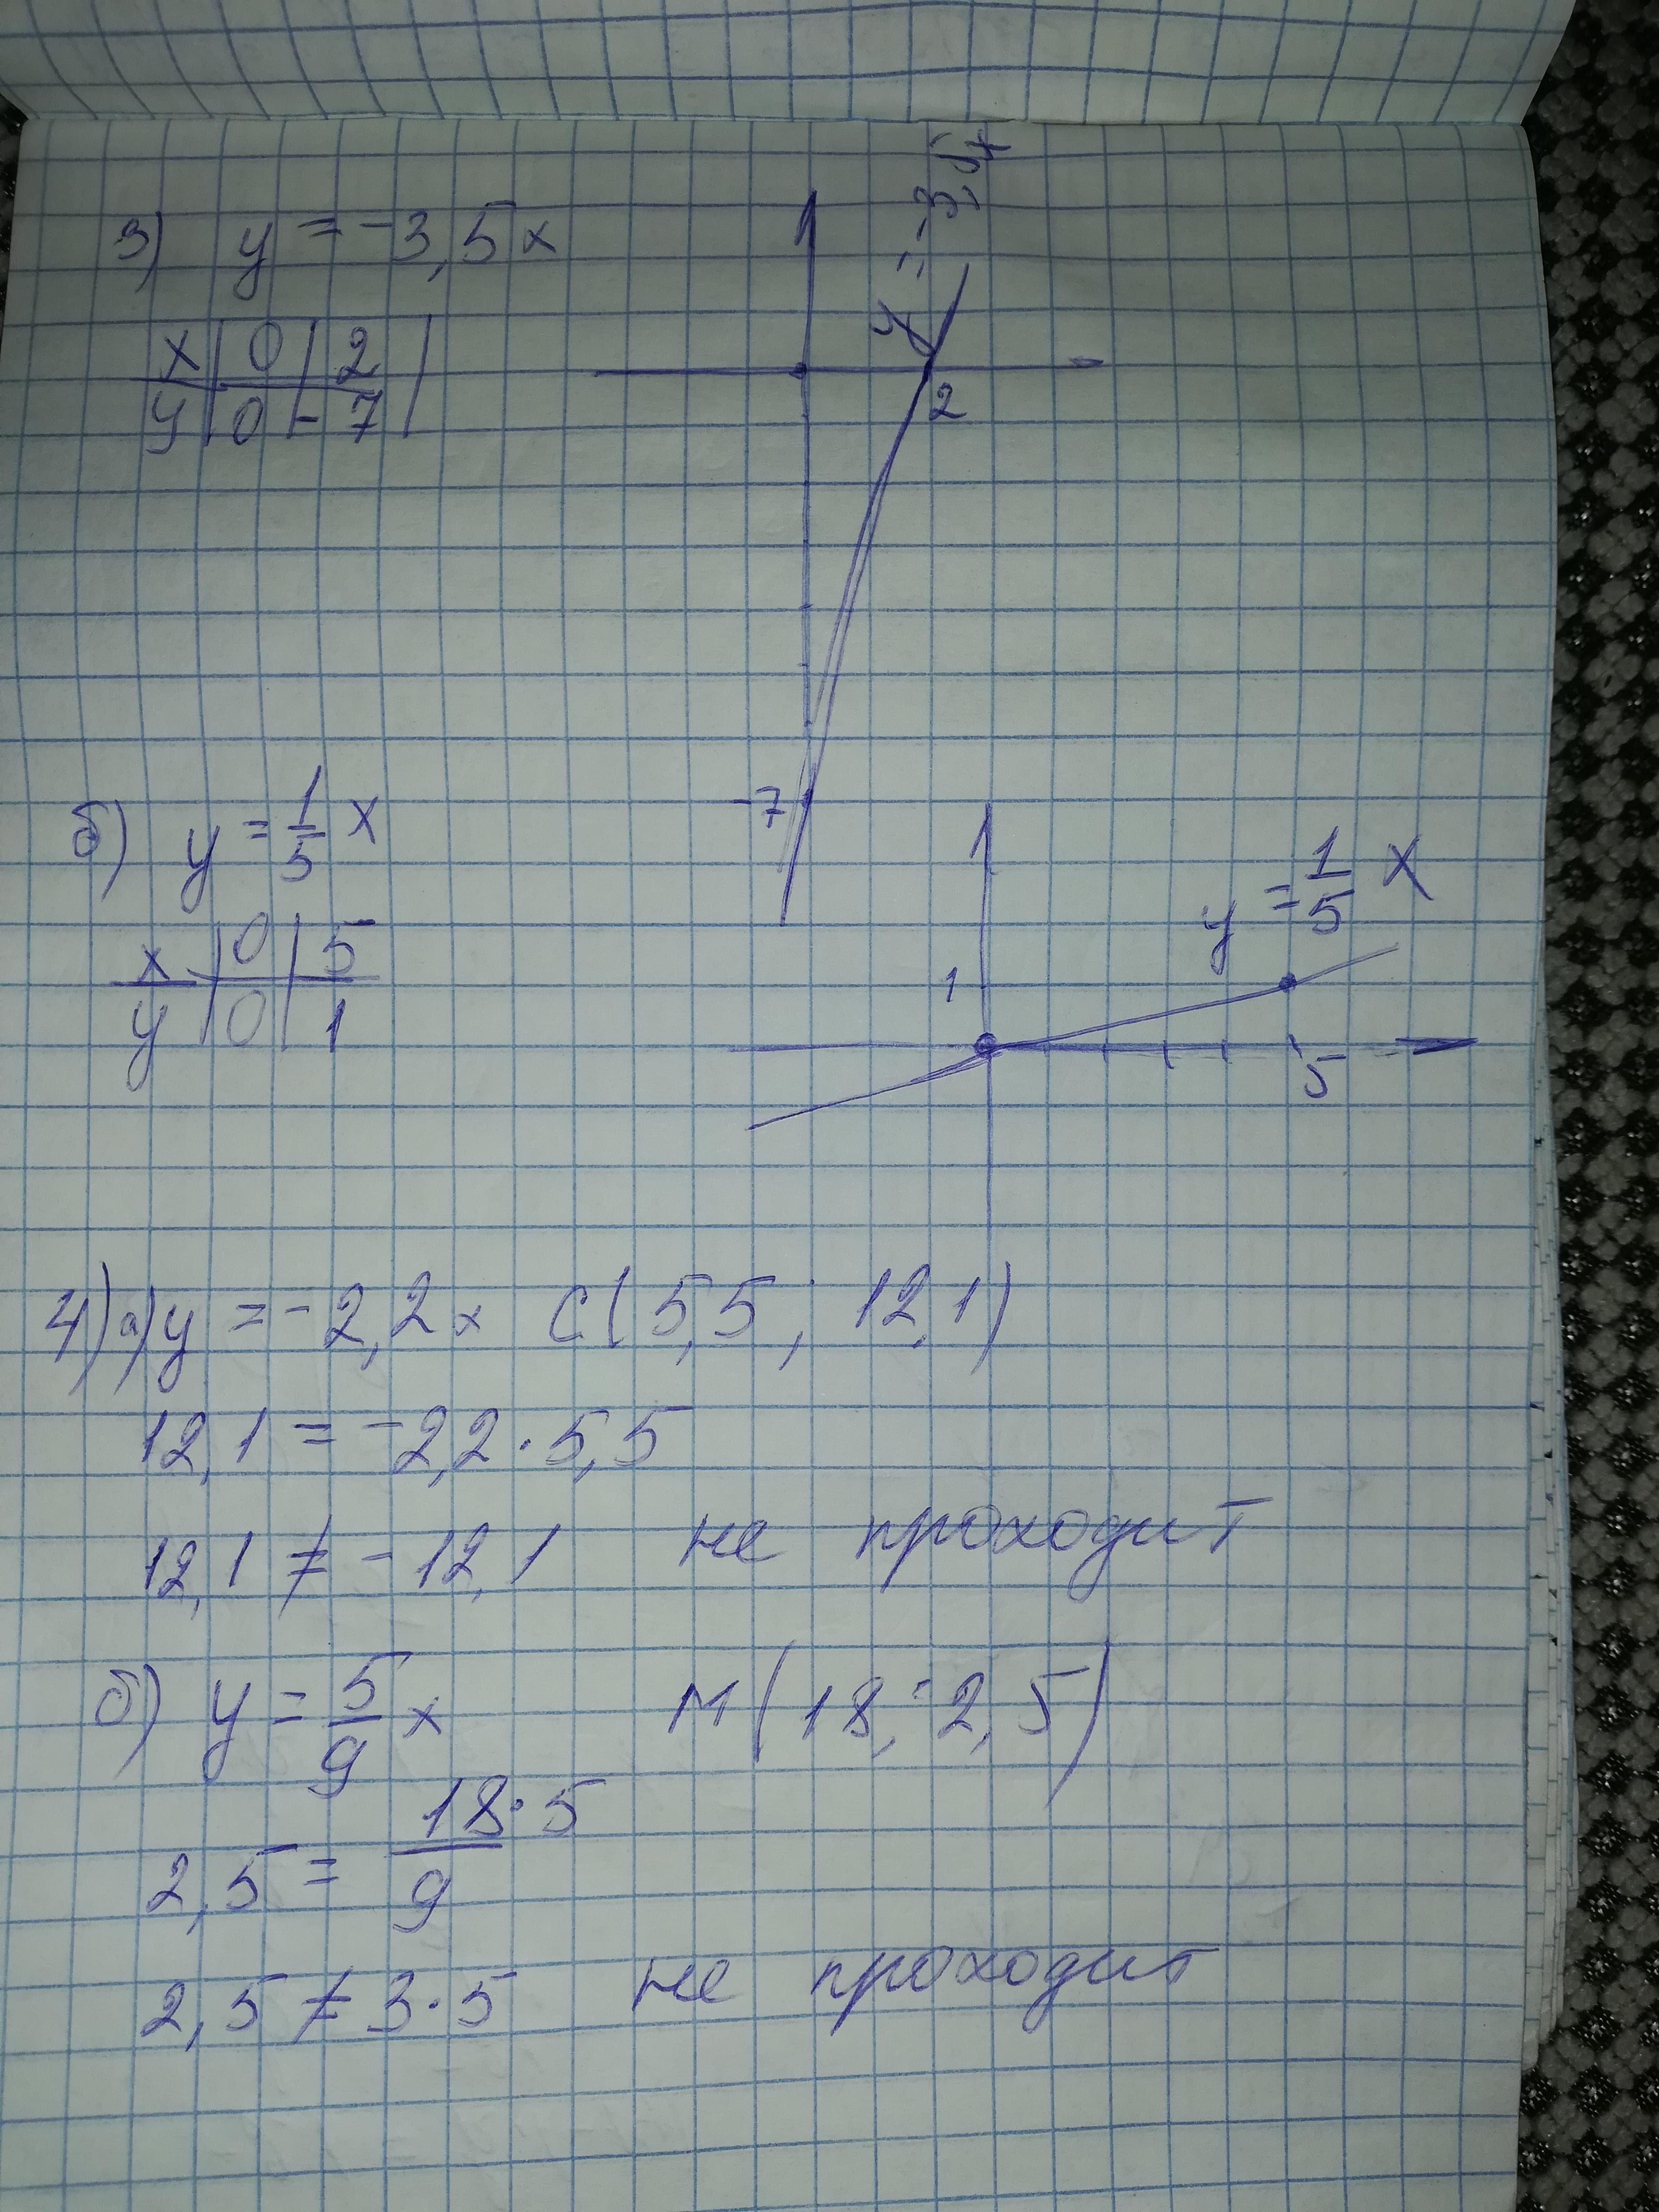 3) y = -3,5x
x | 0 | 2 |
y | 0 | -7 |
y = -3,5x
2
-7
б) y = 1/5 x
x | 0 | 5
y | 0 | 1
y = 1/5 x
1
5
4) а) y = -2,2x C(5,5; 12,1)
12,1 = -2,2·5,5
12,1 ≠ -12,1 не проходит
б) y = 5/9 x M(18; 2,5)
2,5 = 18·5/9
2,5 ≠ 3·5 не проходит